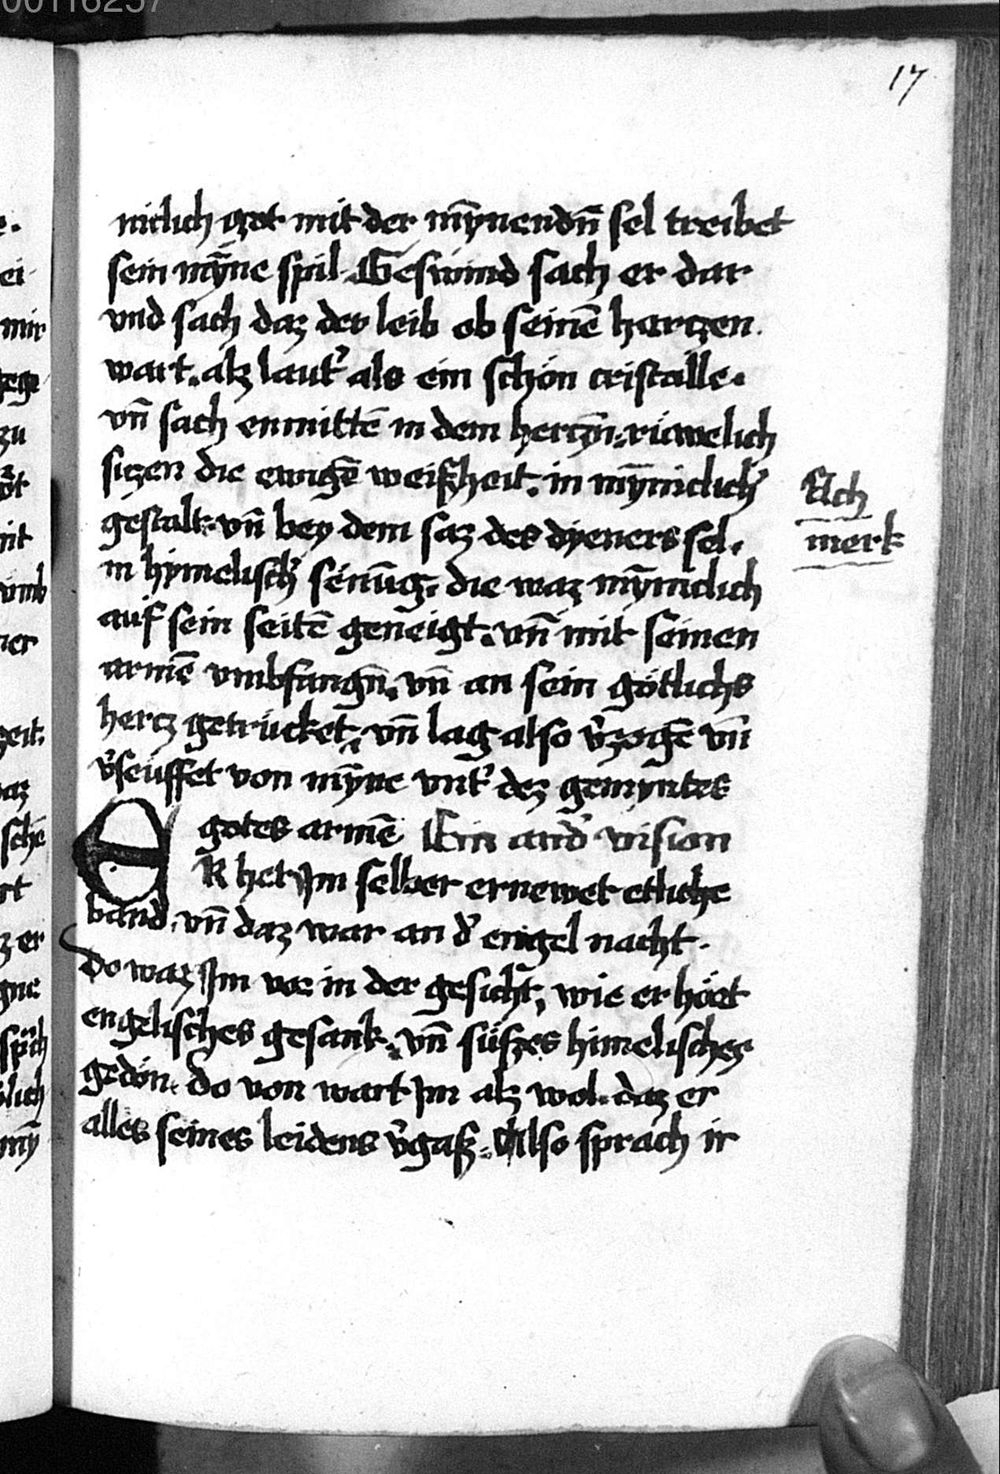 17
nitlich got mit der mȳnendn̄ sel treibet
sein mȳne spil. Geswind sach er dar
vnd sach daz der leib ob seinē hertzen
wart. alz laut᾽ als ein schön cristalle.
vn̄ sach enmittē in dem hertzn̄. rüwelich
sitzen die ewigē weißheit. in mȳniclich᾽
gestalt. vn̄ bey dem saz des dyeners sel.
in hymelisch᾽ senūg. die waz mȳniclich
auf sein seitē geneigt. vn̄ mit seinen
armē vmbfangn̄. vn̄ an sein götlichs
hertz getrücket. vn̄ lag also v᾽zogē vn̄
v᾽seuffet von mȳne vnt᾽ dez gemyntes
gotes armē Ein and᾽ vision
ER het Im selber ernewet etliche
band. vn̄ daz war an d᾽ engel nacht.
do waz Im vor in der gesicht, wie er hört
engelisches gesank. vn̄ süszes himelisches
gedön. do von wart Im alz wol. daz er
alles seines leidens v᾽gaß. Also sprach ir
Ach
merk